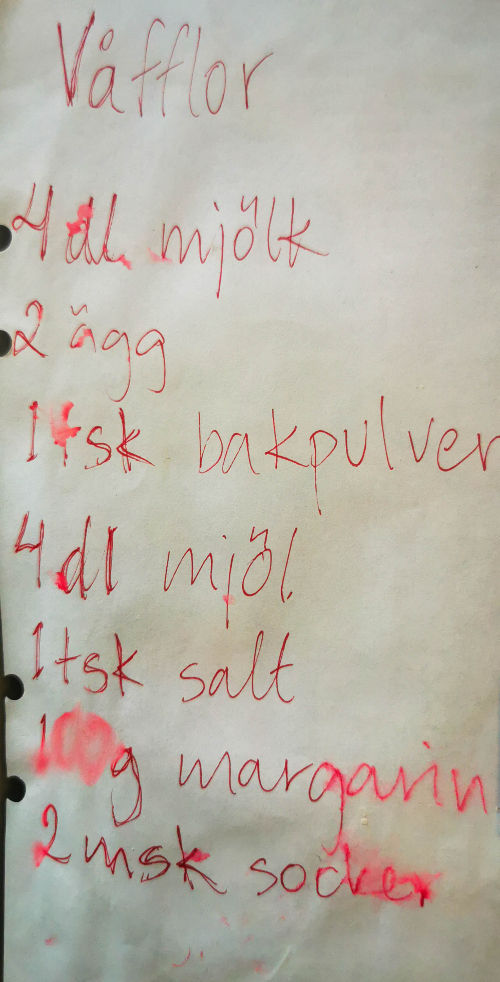 Våfflor
4 dl mjölk
2 ägg
1 tsk bakpulver
4 dl mjöl
1 tsk salt
100g margarin
2 msk socker